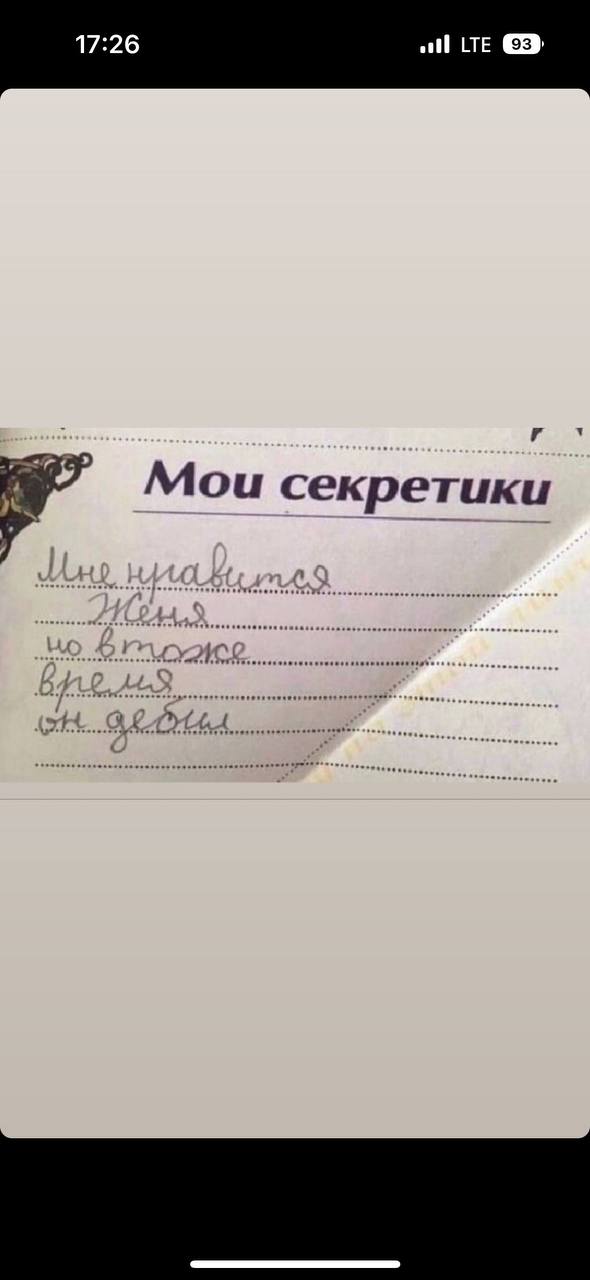 17:26
LTE
93
Мои секретики
Мне нравится
Женя
но втоже
время
он дебил